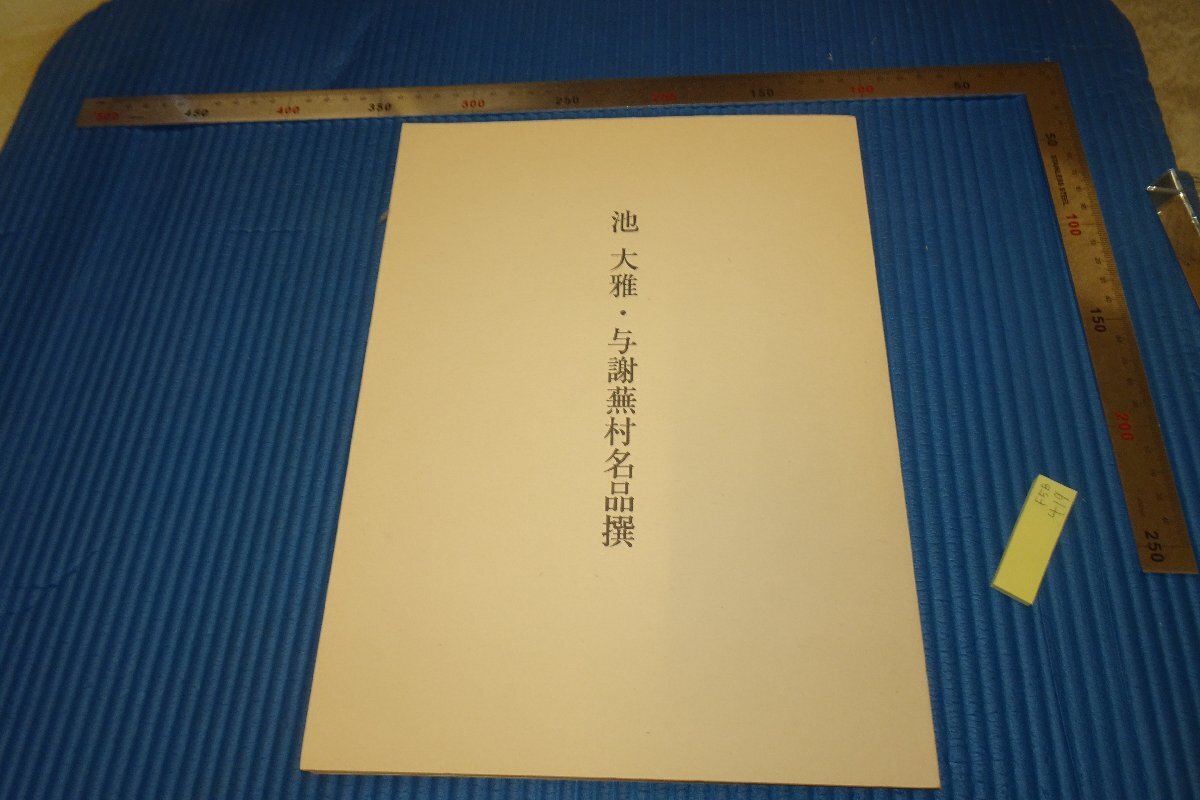 池 大雅・与謝蕪村名品撰
500 450 400 350 300 250 200 150 100 50
50
STAINLESS STEEL
100
150
200
250
F5B
419